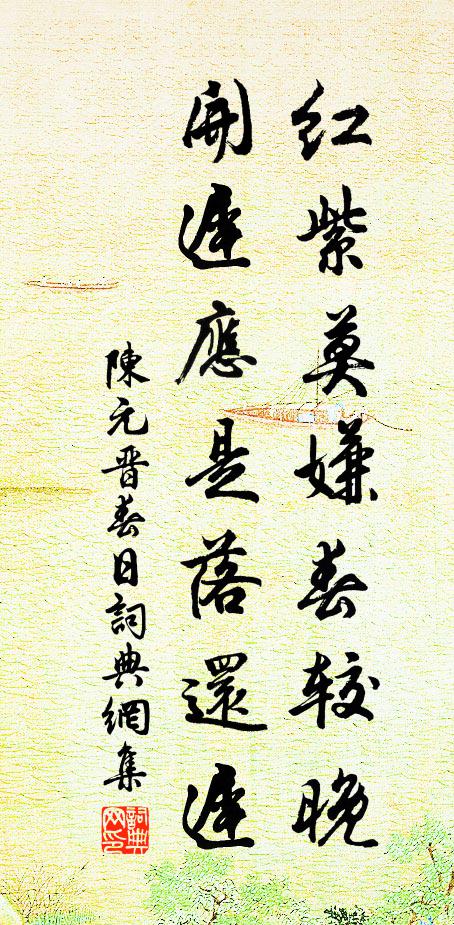 紅紫莫嫌春較晚
開遲應是落還遲
陳元晋春日詞典網集
詞典網印